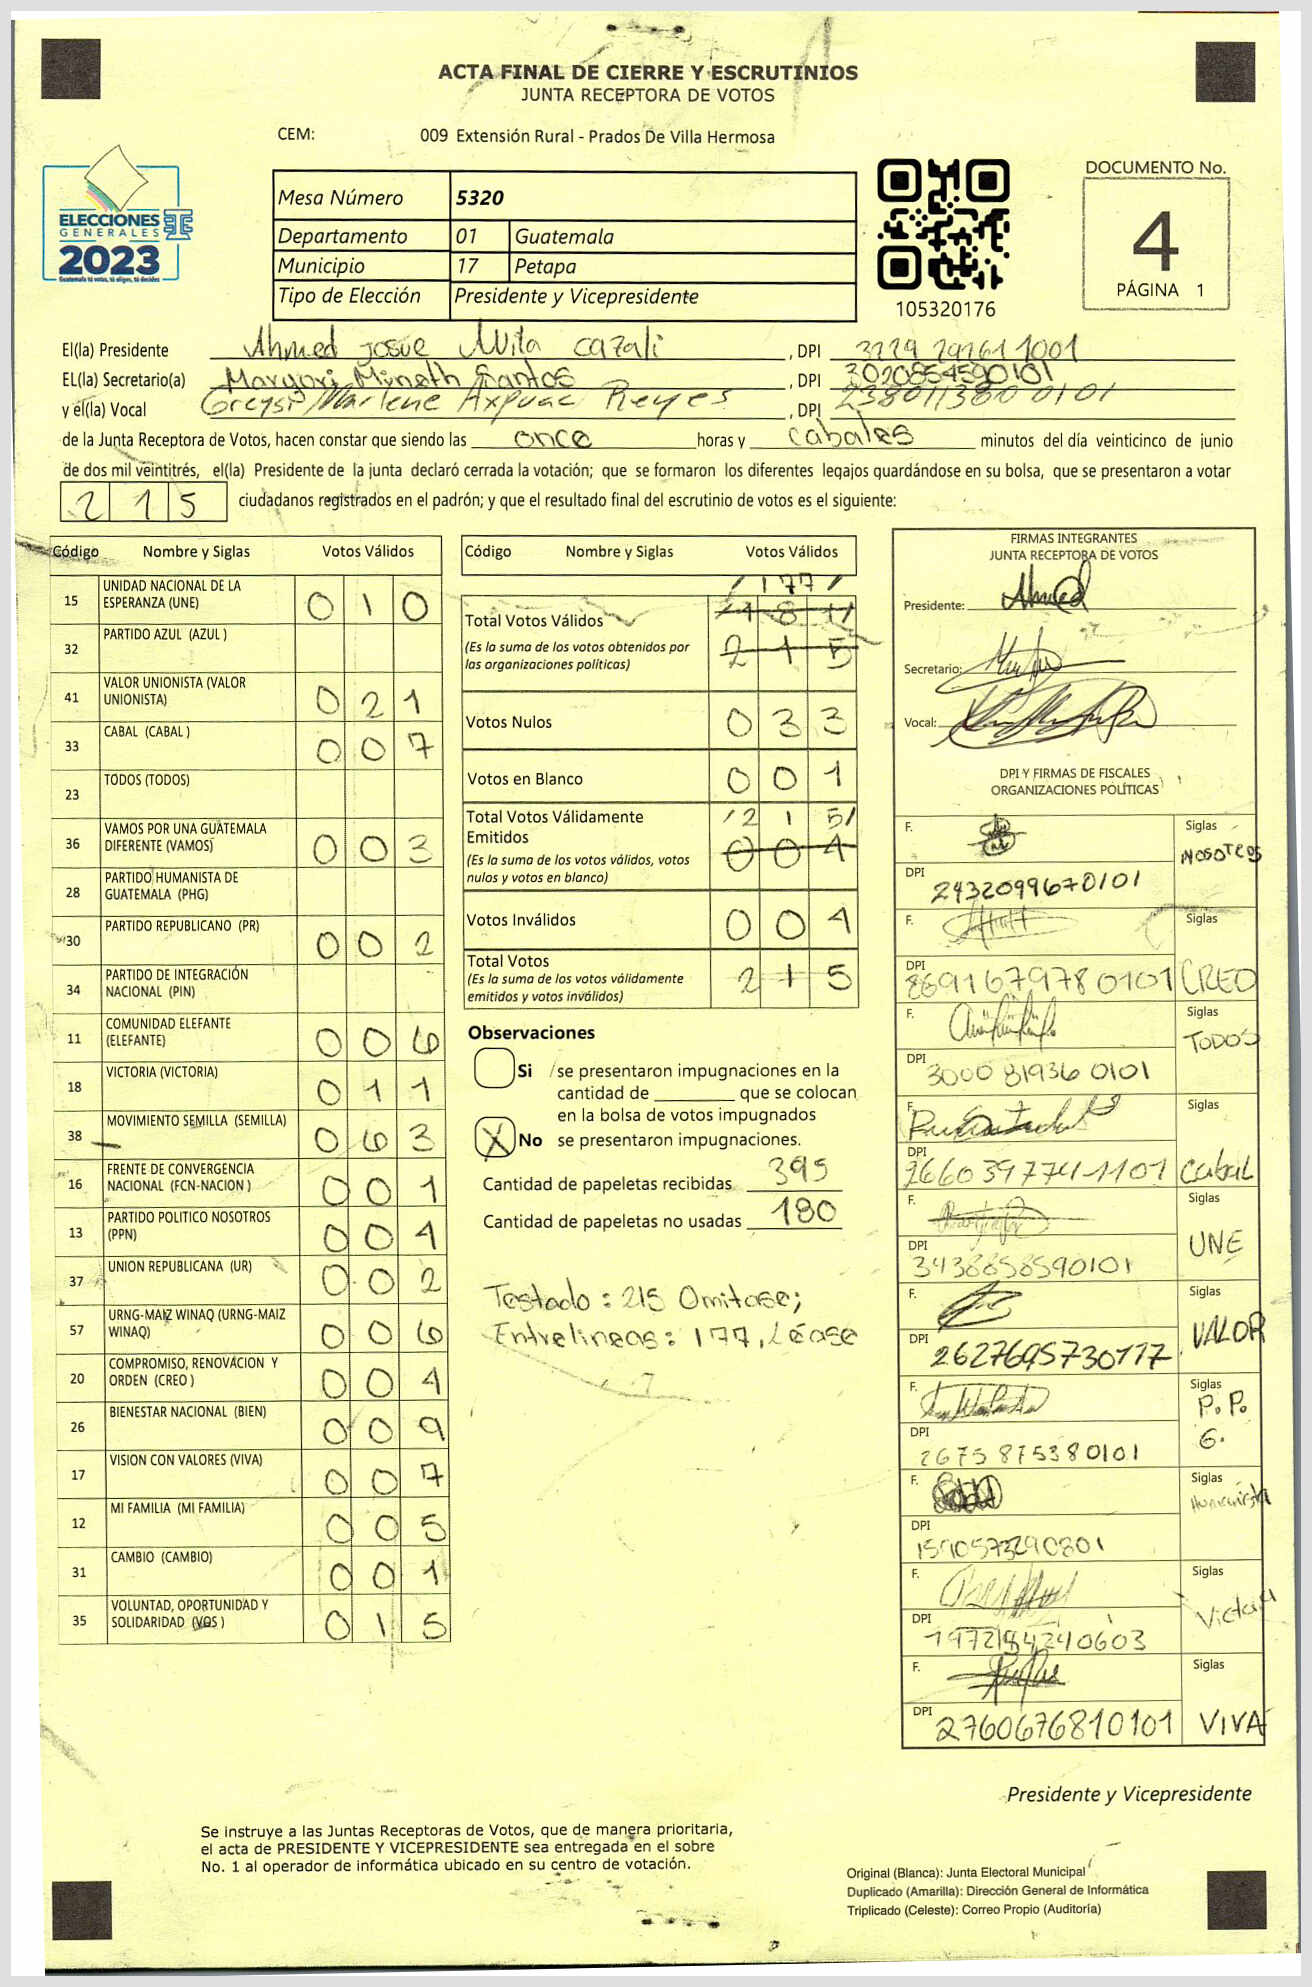 ACTA FINAL DE CIERRE Y ESCRUTINIOS
JUNTA RECEPTORA DE VOTOS
CEM: 009 Extensión Rural - Prados De Villa Hermosa
ELECCIONES
GENERALES
2023
Guatemala tú votas, tú eliges, tú decides
Mesa Número 5320
Departamento 01 Guatemala
Municipio 17 Petapa
Tipo de Elección Presidente y Vicepresidente
105320176
DOCUMENTO No.
4
PÁGINA 1
El(la) Presidente Ahmed Josue Avila Cazali, DPI
EL(la) Secretario(a) Maryori Mineth Santos, DPI 3020854590101
y el(la) Vocal Greysi Marlene Axpuac Reyes, DPI 2380113800101
de la Junta Receptora de Votos, hacen constar que siendo las once horas y cabales minutos del día veinticinco de junio
de dos mil veintitrés, el(la) Presidente de la junta declaró cerrada la votación; que se formaron los diferentes legajos guardándose en su bolsa, que se presentaron a votar
215 ciudadanos registrados en el padrón; y que el resultado final del escrutinio de votos es el siguiente:
Código Nombre y Siglas Votos Válidos
15 UNIDAD NACIONAL DE LA ESPERANZA (UNE) 010
32 PARTIDO AZUL (AZUL )
41 VALOR UNIONISTA (VALOR UNIONISTA) 021
33 CABAL (CABAL ) 007
23 TODOS (TODOS)
36 VAMOS POR UNA GUATEMALA DIFERENTE (VAMOS) 003
28 PARTIDO HUMANISTA DE GUATEMALA (PHG)
30 PARTIDO REPUBLICANO (PR) 002
34 PARTIDO DE INTEGRACIÓN NACIONAL (PIN)
11 COMUNIDAD ELEFANTE (ELEFANTE) 006
18 VICTORIA (VICTORIA) 011
38 MOVIMIENTO SEMILLA (SEMILLA) 063
16 FRENTE DE CONVERGENCIA NACIONAL (FCN-NACION ) 001
13 PARTIDO POLITICO NOSOTROS (PPN) 004
37 UNION REPUBLICANA (UR) 002
57 URNG-MAIZ WINAQ (URNG-MAIZ WINAQ) 006
20 COMPROMISO, RENOVACION Y ORDEN (CREO ) 004
26 BIENESTAR NACIONAL (BIEN) 009
17 VISION CON VALORES (VIVA) 007
12 MI FAMILIA (MI FAMILIA) 005
31 CAMBIO (CAMBIO) 001
35 VOLUNTAD, OPORTUNIDAD Y SOLIDARIDAD (VOS ) 015
Código Nombre y Siglas Votos Válidos
/177/
Total Votos Válidos 181
(Es la suma de los votos obtenidos por las organizaciones políticas) 215
Votos Nulos 033
Votos en Blanco 001
Total Votos Válidamente Emitidos /215/
(Es la suma de los votos válidos, votos nulos y votos en blanco) 004
Votos Inválidos 004
Total Votos 215
(Es la suma de los votos válidamente emitidos y votos inválidos)
Observaciones
Si se presentaron impugnaciones en la
cantidad de ________ que se colocan
en la bolsa de votos impugnados
X No se presentaron impugnaciones.
Cantidad de papeletas recibidas 395
Cantidad de papeletas no usadas 180
Testado: 215 Omitase;
Entrelineas: 177, Léase
FIRMAS INTEGRANTES
JUNTA RECEPTORA DE VOTOS
Presidente: Ahmed
Secretario:
Vocal:
DPI Y FIRMAS DE FISCALES
ORGANIZACIONES POLÍTICAS
F. Siglas NOSOTROS
DPI 2432099670101
F. Siglas CREO
DPI 8691679780101
F. Siglas TODOS
DPI 3000819360101
F. Siglas Cabal
DPI 2660397741101
F. Siglas UNE
DPI 3438858590101
F. Siglas VALOR
DPI 2627695730117
F. Siglas P.P.G.
DPI 2675875380101
F. Siglas Humanista
DPI
F. Siglas Victoria
DPI 1972184240603
F. Siglas VIVA
DPI 2760676810101
Presidente y Vicepresidente
Se instruye a las Juntas Receptoras de Votos, que de manera prioritaria,
el acta de PRESIDENTE Y VICEPRESIDENTE sea entregada en el sobre
No. 1 al operador de informática ubicado en su centro de votación.
Original (Blanca): Junta Electoral Municipal
Duplicado (Amarilla): Dirección General de Informática
Triplicado (Celeste): Correo Propio (Auditoría)